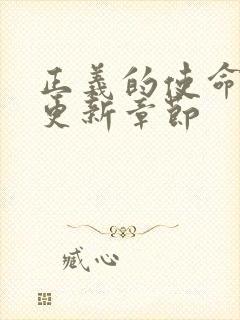 正義的使命
更新章節
臧心